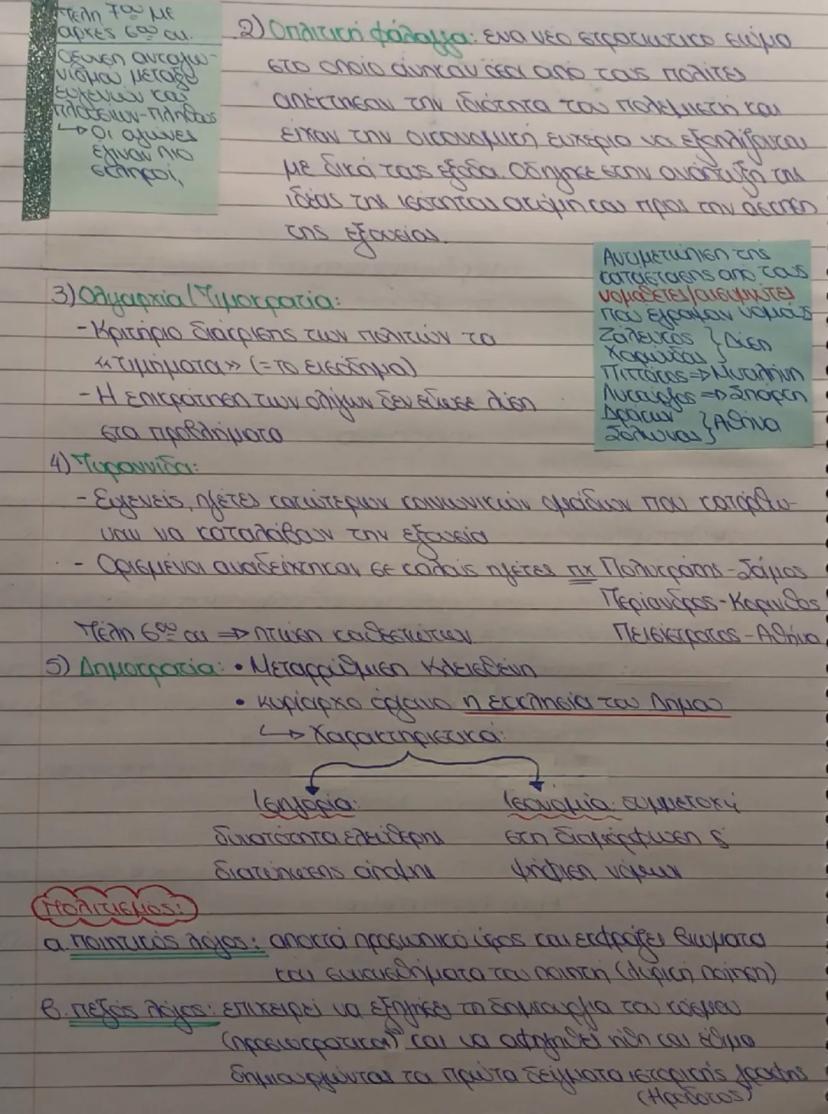 τέλη 7ου με
αρχές 6ου αι.
Όξυνση ανταγω-
νισμού μεταξύ
ευγενών και
πλουσίων-πλήθους
↳ Οι αγώνες
έγιναν πιο
σκληροί,
2) Οπλιτική φάλαγγα: ένα νέο στρατιωτικό σώμα
στο οποίο άνηκαν όσοι από τους πολίτες
απέκτησαν την ιδιότητα του πολεμιστή και
είχαν την οικονομική ευχέρια να εξοπλίζονται
με δικά τους έξοδα. Οδήγησε στην ανάπτυξη της
ιδέας της ισότητας ακόμη και προς την άσκηση
της εξουσίας.
Αντιμετώπιση της
κατάστασης από τους
νομοθέτες/αισυμνήτες
που έγραψαν νόμους
Ζάλευκος } Δύση
Χαρώνδας
Πιττακός => Μυτιλήνη
Λυκούργος => Σπάρτη
Δράκων } Αθήνα
Σόλωνας
3) Ολιγαρχία/Τιμοκρατία:
- Κριτήριο διάκρισης των πολιτών το
«τιμήματα» (= το εισόδημα)
- Η επικράτηση των ολίγων δεν έδωσε λύση
στα προβλήματα
4) Τυραννίδα:
- Ευγενείς, ηγέτες κατώτερων κοινωνικών ομάδων που κατόρθω-
ναν να καταλάβουν την εξουσία
- Ορισμένοι αναδείχτηκαν σε καλούς ηγέτες πχ Πολυκράτης-Σάμος
Περίανδρος-Κόρινθος
Πεισίστρατος-Αθήνα
Τέλη 6ου αι => πτώση καθεστώτων
5) Δημοκρατία: • Μεταρρύθμιση Κλεισθένη
• κυρίαρχο όργανο η εκκλησία του Δήμου
↳ Χαρακτηριστικά:
Ισηγορία: Ισονομία: συμμετοχή
δυνατότητα ελεύθερης στη διαμόρφωση ς'
διατύπωσης άποψης ψήφιση νόμων
Πολιτισμός:
α. ποιητικός λόγος: αποκτά προσωπικό ύφος και εκφράζει βιώματα
και συναισθήματα του ποιητή (λυρική ποίηση)
β. πεζός λόγος: επιχειρεί να εξηγήσει τη δημιουργία του κόσμου
(προσωκρατικοί) και να αφηγηθεί ήθη και έθιμα
δημιουργώντας τα πρώτα δείγματα ιστορικής γραφής
(Ηρόδοτος)